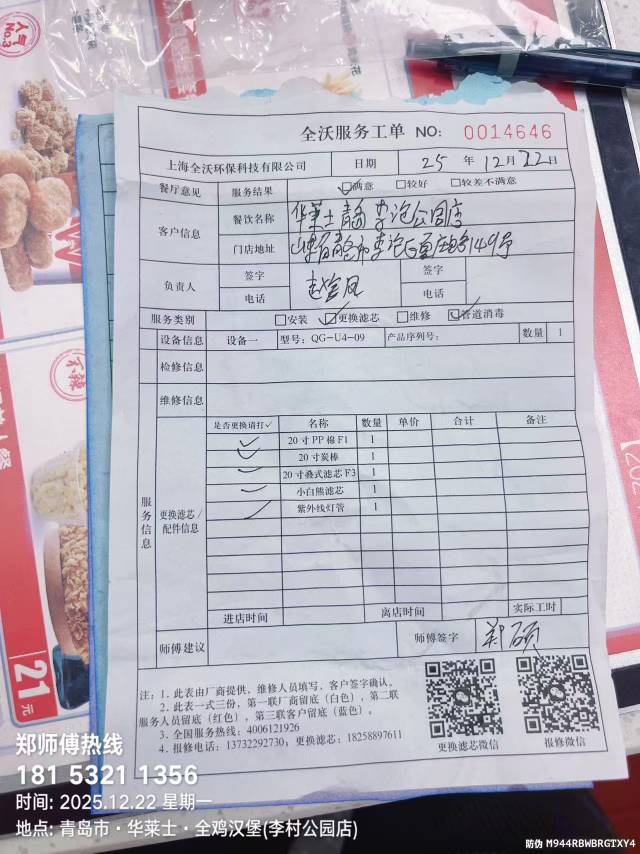 人气
No.3
不辣
21元
全沃服务工单 NO: 0014646
上海全沃环保科技有限公司 日期 25 年 12 月 22 日
餐厅意见 服务结果 ☑满意 □较好 □较差不满意
客户信息 餐饮名称 华莱士青岛李沧公园店
门店地址 山东省青岛市李沧区 149号
负责人 签字 签字
电话 电话
服务类别 □安装 ☑更换滤芯 □维修 ☑管道消毒
设备信息 设备一 型号: QG-U4-09 产品序列号: 数量 1
检修信息
维修信息
服务信息 更换滤芯/配件信息 是否更换请打✓ 名称 数量 单价 合计 备注
✓ 20寸PP棉F1 1
✓ 20寸炭棒 1
✓ 20寸叠式滤芯F3 1
✓ 小白熊滤芯 1
✓ 紫外线灯管 1
进店时间 离店时间 实际工时
师傅建议 师傅签字 郑硕
注: 1. 此表由厂商提供, 维修人员填写, 客户签字确认。
2. 此表一式三份, 第一联厂商留底(白色), 第二联
服务人员留底(红色), 第三联客户留底(蓝色)。
3. 全国服务热线: 4006121926
4. 报修电话: 13732292730, 更换滤芯: 18258897611
更换滤芯微信 报修微信
郑师傅热线
181 5321 1356
时间: 2025.12.22 星期一
地点: 青岛市·华莱士·全鸡汉堡(李村公园店)
防伪 M944RBWBRGTXY4